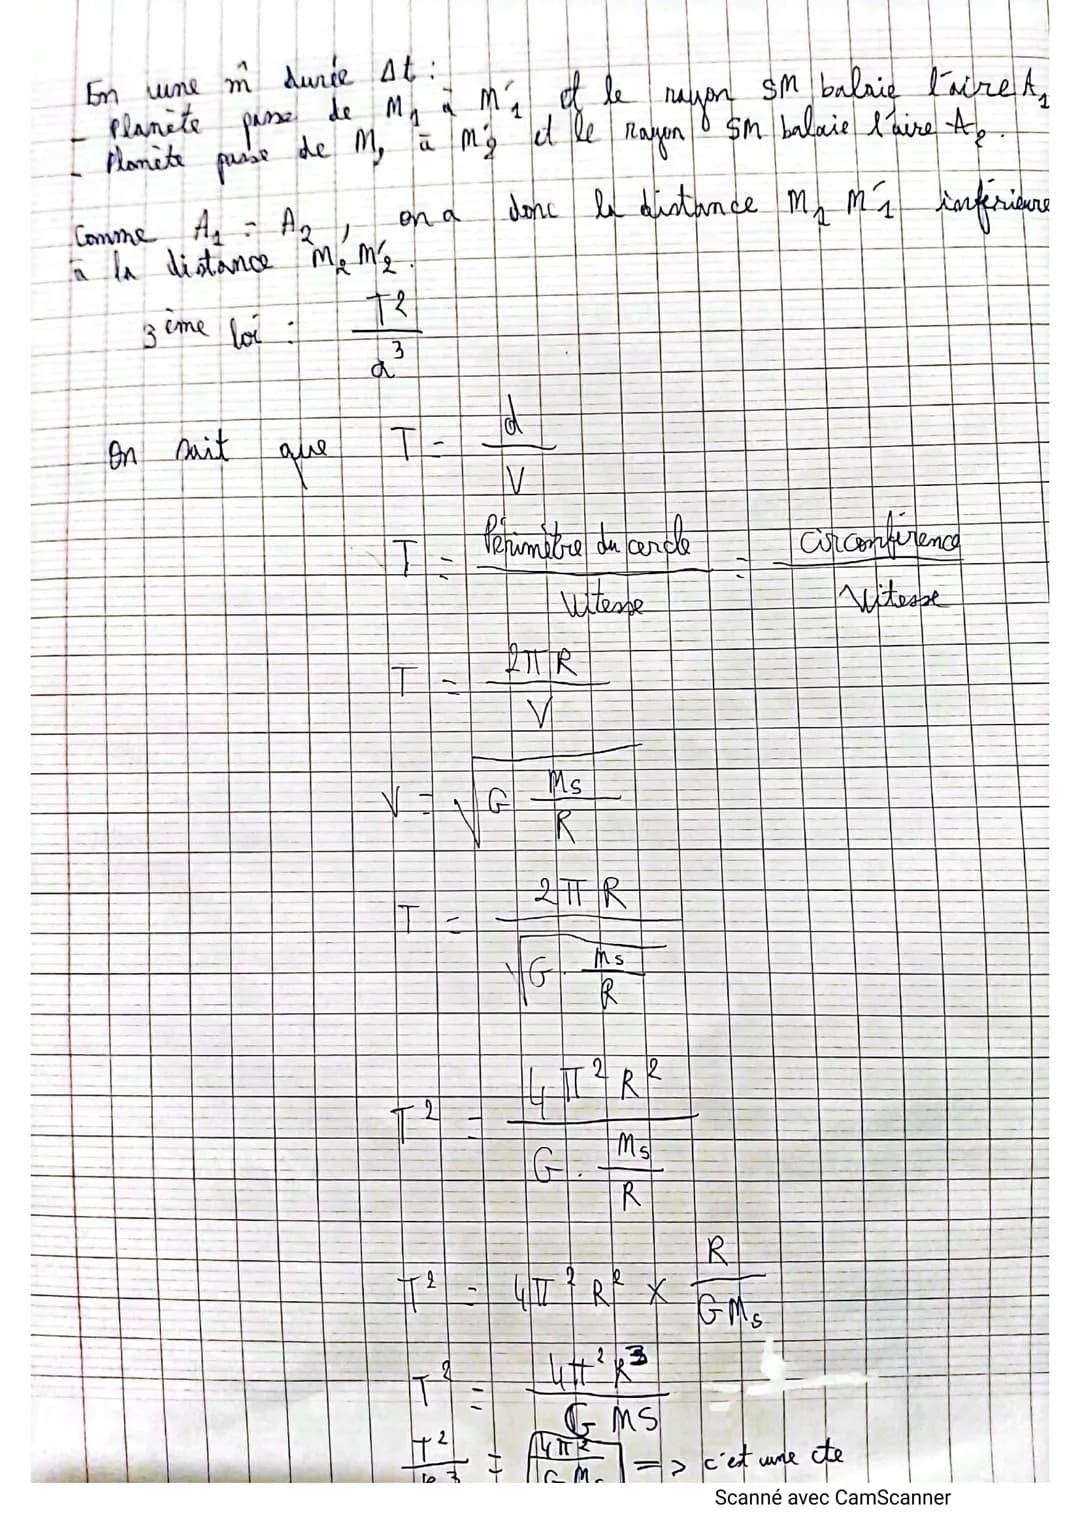 En une m̂ durée Δt :
- Planète passe de M₁ à M'₁ et le rayon SM balaie l'aire A₁
- Planète passe de M₂ à M'₂ et le rayon SM balaie l'aire A₂.
Comme A₁ = A₂, on a donc la distance M₁ M'₁ inférieure
à la distance M₂ M'₂.
3ème loi : T² / a³
On sait que T = d / V
T = Périmètre du cercle / Vitesse = circonférence / Vitesse
T = 2πR / V
V = √(G Ms / R)
T = 2πR / √(G . Ms / R)
T² = 4π² R² / (G . Ms / R)
T² = 4π² R² × R / GMs
T² = 4π² R³ / G MS
T² / R³ = 4π² / G Ms => c'est une cte
Scanné avec CamScanner